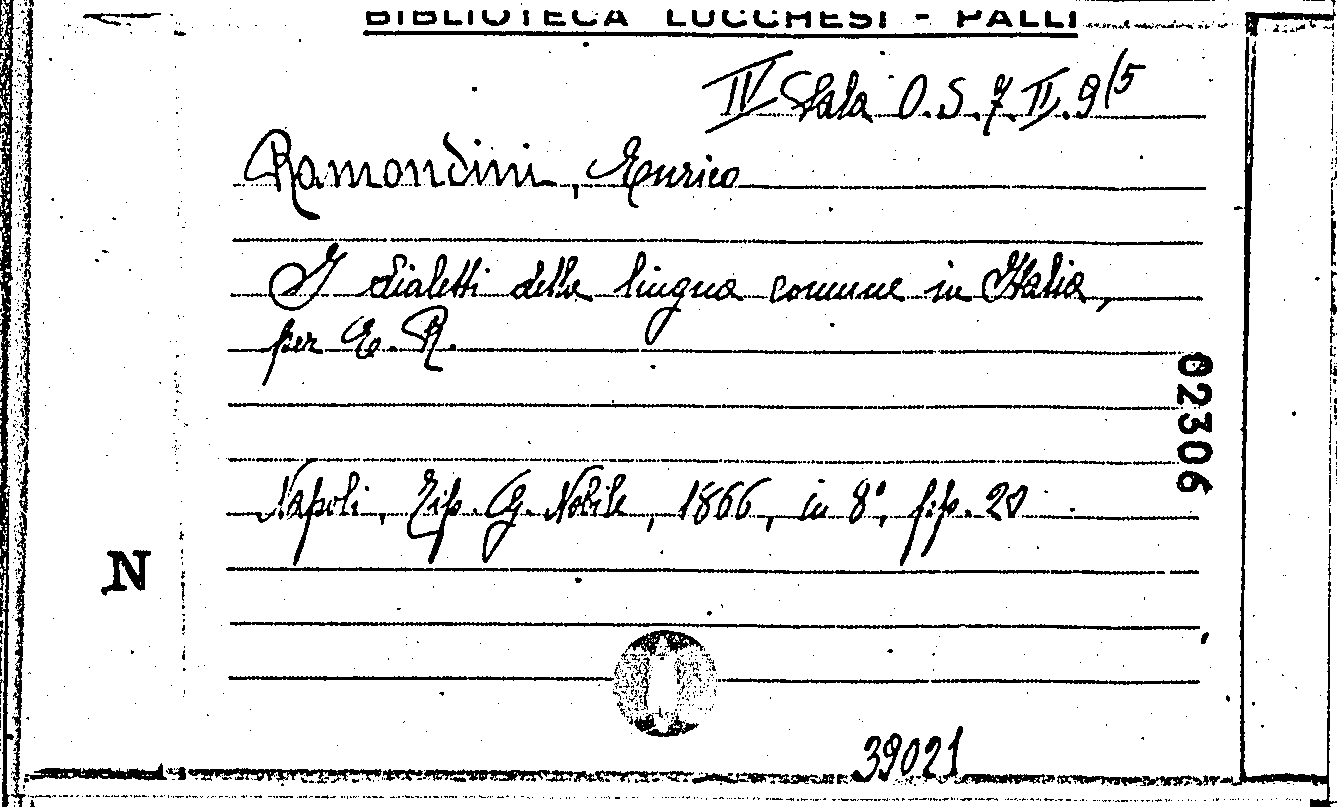 BIBLIOTECA LUCCHESI - PALLI
IV Sala O.S.7.II.9(5
Ramondini, Enrico
I dialetti della lingua comune in Italia,
per E. R.
02306
Napoli, Tip. G. Nobile, 1866, in 8°, p.p. 20
N
39021